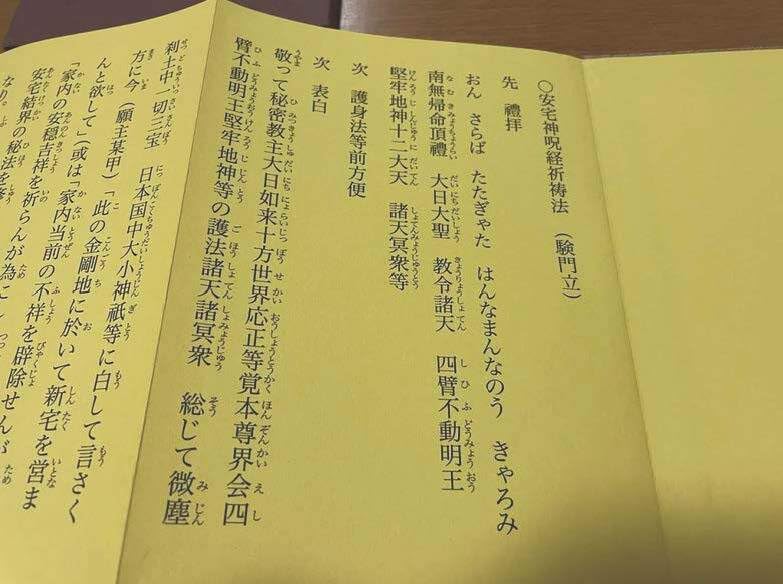 〇安宅神呪経祈祷法　（験門立）
先　禮拝
おん　さらば　たたぎゃた　はんなまんなのう　きゃろみ
南無帰命頂禮　大日大聖　教令諸天　四臂不動明王
堅牢地神十二大天　諸天冥衆等
次　護身法等前方便
次　表白
敬って秘密教主大日如来十方世界応正等覚本尊界会四
臂不動明王堅牢地神等の護法諸天諸冥衆　総じて微塵
刹土中一切三宝　日本国中大小神祇等に白して言さく
方に今　（願主某甲）「此の金剛地に於いて新宅を営ま
んと欲して」（或は「家内当前の不祥を辟除せんが
「家内の安穏吉祥を祈らんが為に
安宅結界の秘法を修
なり。